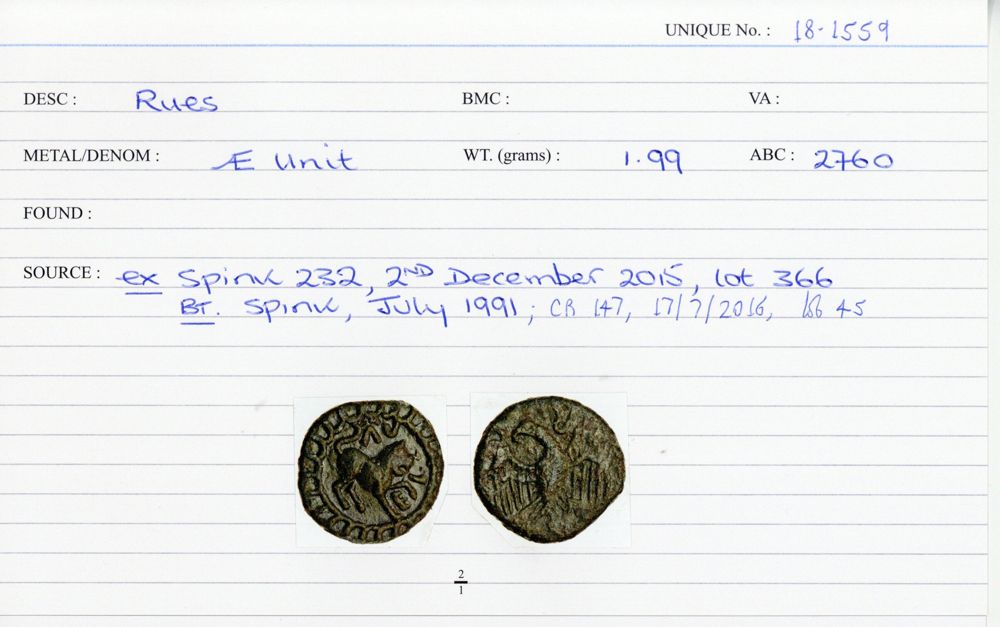 UNIQUE No. : 18-1559
DESC : Rues BMC : VA :
METAL/DENOM : Æ Unit WT. (grams) : 1.99 ABC : 2760
FOUND :
SOURCE : ex Spink 232, 2ND December 2015, lot 366
BT. Spink, July 1991; CR 147, 17/7/2016, 45
2
1